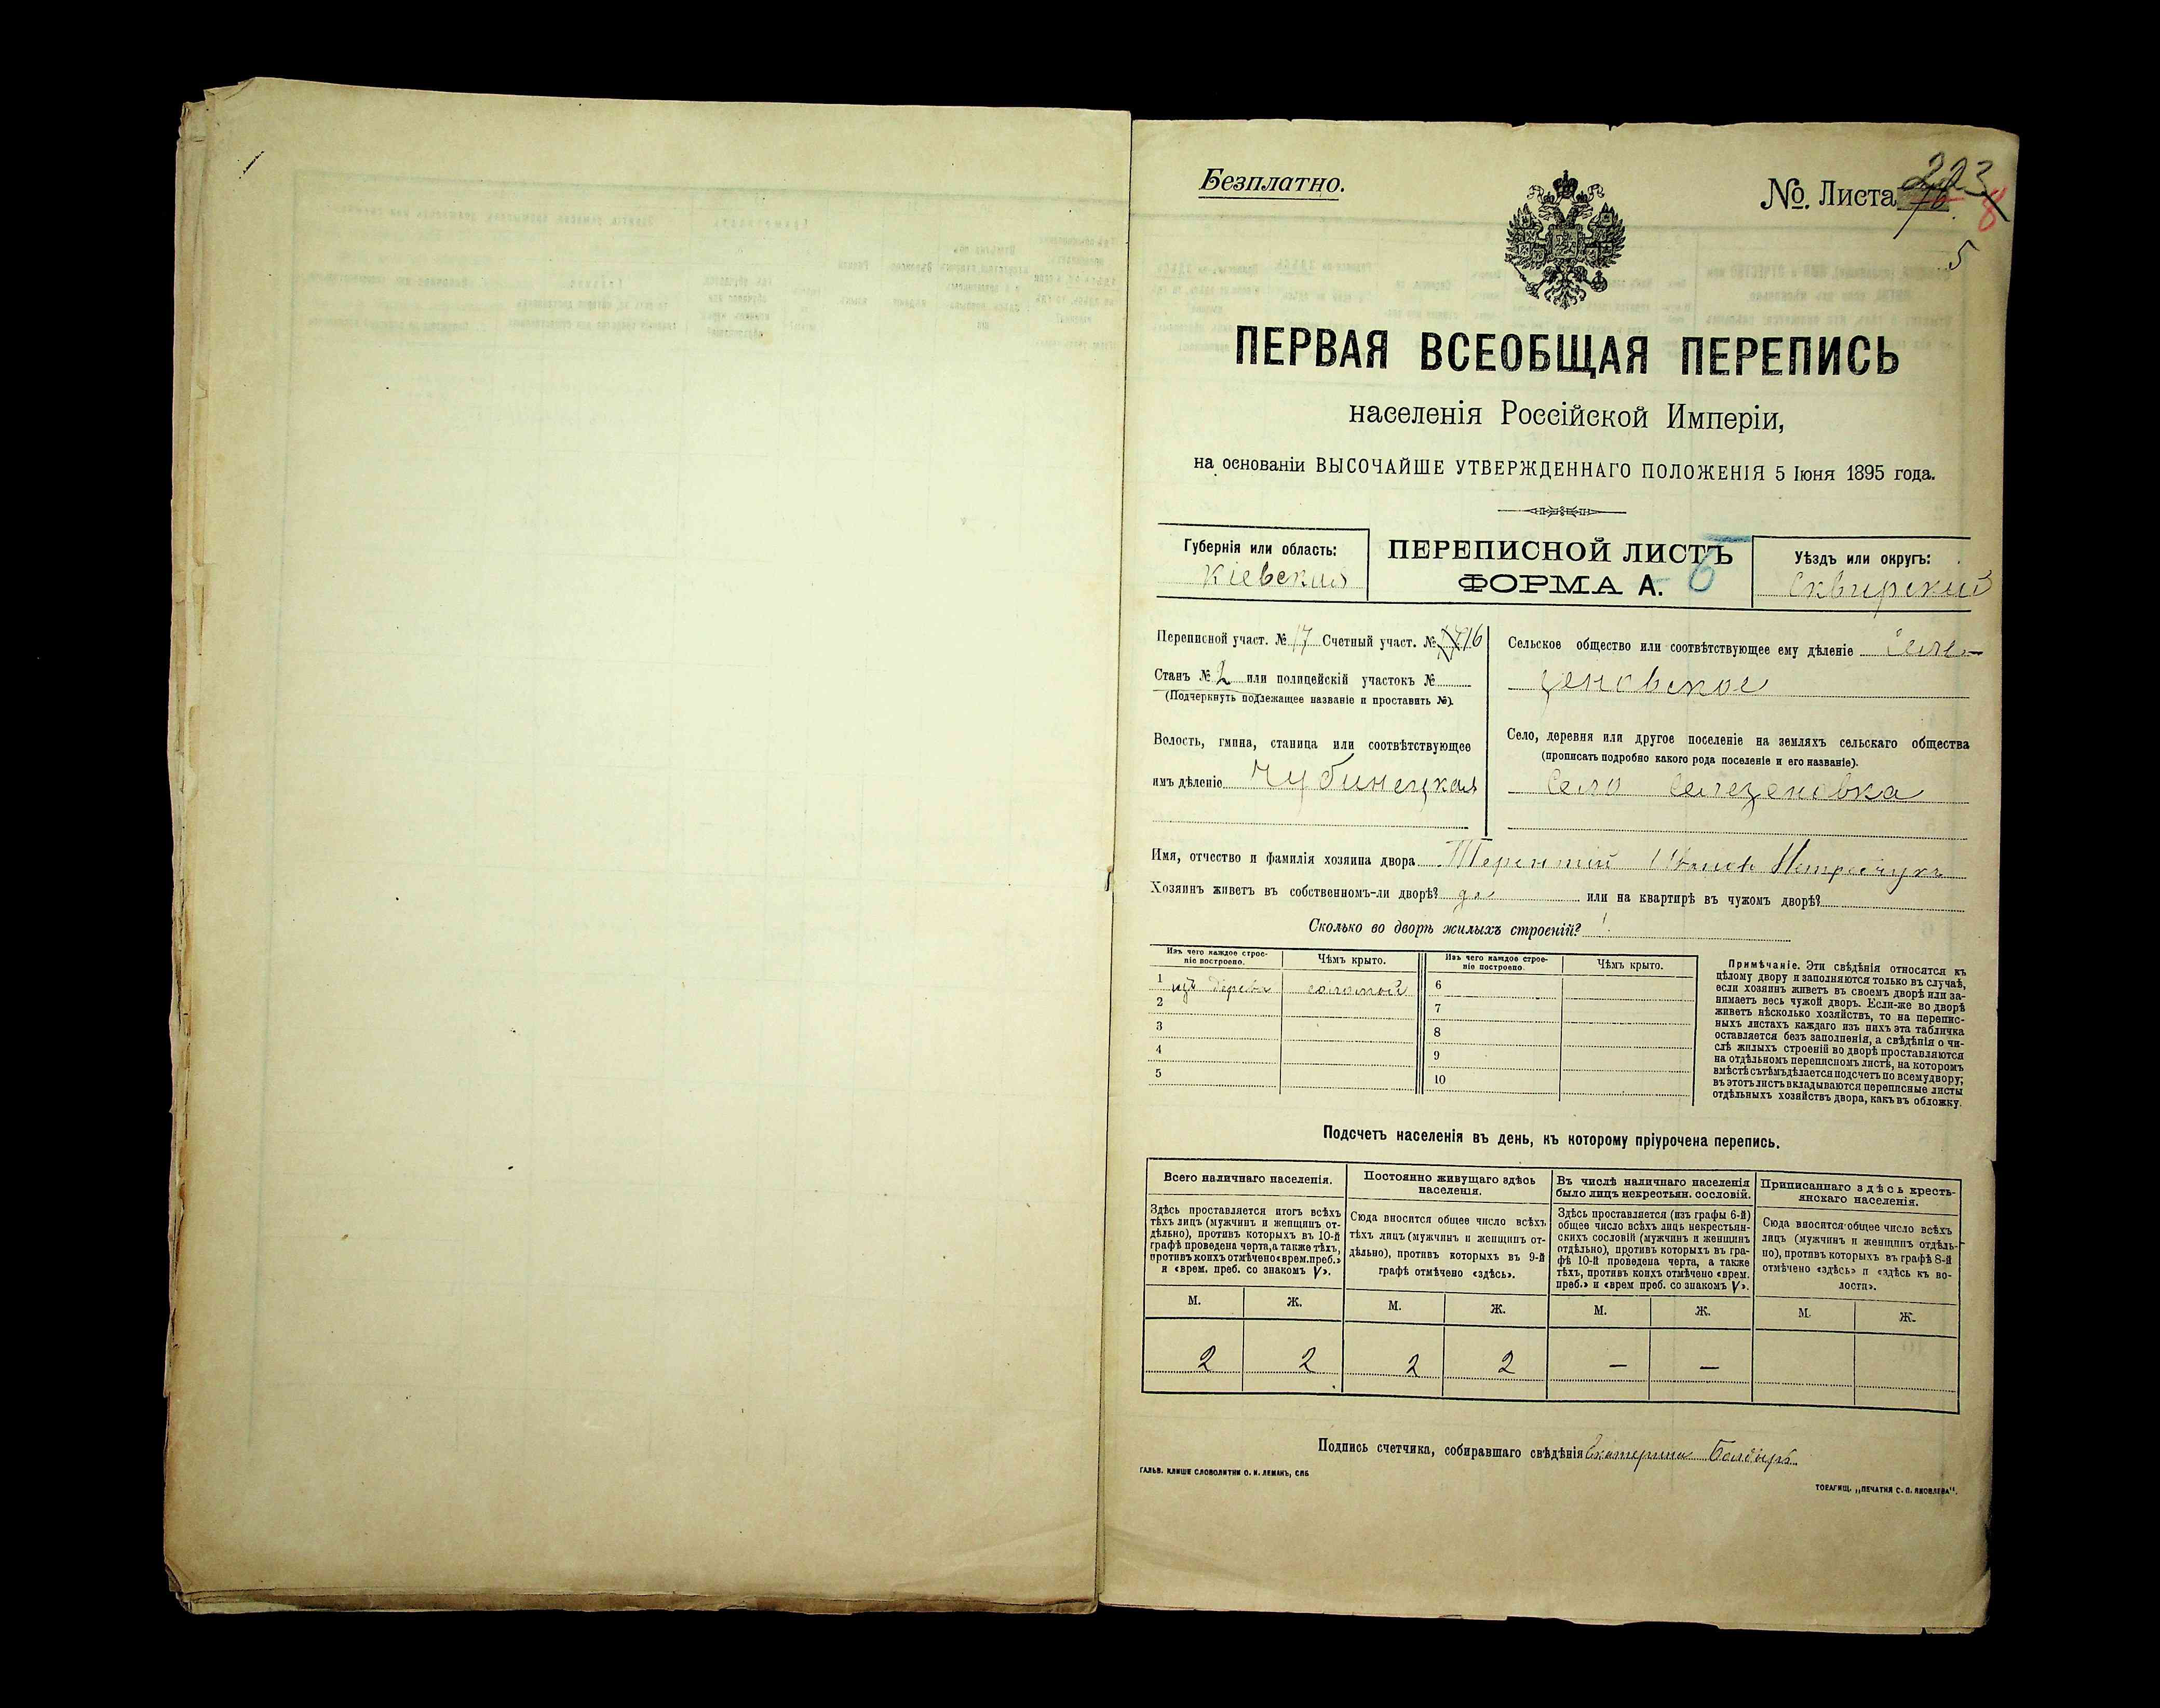 Безплатно.
№. Листа 223
8
5
ПЕРВАЯ ВСЕОБЩАЯ ПЕРЕПИСЬ
населенія Россійской Имперіи,
на основаніи ВЫСОЧАЙШЕ УТВЕРЖДЕННАГО ПОЛОЖЕНІЯ 5 Іюня 1895 года.
Губернія или область:
Кіевская
ПЕРЕПИСНОЙ ЛИСТЪ
ФОРМА А. Б
Уѣздъ или округъ:
Сквирскій
Переписной участ. № 17 Счетный участ. № 16
Станъ № 2 или полицейскій участокъ №
(Подчеркнуть подлежащее названіе и проставить №).
Волость, гмина, станица или соотвѣтствующее
имъ дѣленіе Чубинецкая
Сельское общество или соотвѣтствующее ему дѣленіе Селе-
зеновское
Село, деревня или другое поселеніе на земляхъ сельскаго общества
(прописать подробно какого рода поселеніе и его названіе).
Село Селезеновка
Имя, отчество и фамилія хозяина двора Терентій Иванов Петрийчукъ
Хозяинъ живетъ въ собственномъ-ли дворѣ? да или на квартирѣ въ чужомъ дворѣ?
Сколько во дворѣ жилыхъ строеній? 1
Изъ чего каждое строе-
ніе построено.
Чѣмъ крыто.
Изъ чего каждое строе-
ніе построено.
Чѣмъ крыто.
1 изъ дерева соломой 6
2 7
3 8
4 9
5 10
Примѣчаніе. Эти свѣдѣнія относятся къ
цѣлому двору и заполняются только въ случаѣ,
если хозяинъ живетъ въ своемъ дворѣ или за-
нимаетъ весь чужой дворъ. Если-же во дворѣ
живетъ нѣсколько хозяйствъ, то на перепис-
ныхъ листахъ каждаго изъ нихъ эта табличка
оставляется безъ заполненія, а свѣдѣнія о чи-
слѣ жилыхъ строеній во дворѣ проставляются
на отдѣльномъ переписномъ листѣ, на которомъ
вмѣстѣ съ тѣмъ дѣлается подсчетъ по всему двору;
въ этотъ листъ вкладываются переписные листы
отдѣльныхъ хозяйствъ двора, какъ въ обложку.
Подсчетъ населенія въ день, къ которому пріурочена перепись.
Всего наличнаго населенія.
Здѣсь проставляется итогъ всѣхъ
тѣхъ лицъ (мужчинъ и женщинъ от-
дѣльно), противъ которыхъ въ 10-й
графѣ проведена черта, а также тѣхъ,
противъ коихъ отмѣчено «врем. преб.»
и «врем. преб. со знакомъ V».
Постоянно живущаго здѣсь
населенія.
Сюда вносится общее число всѣхъ
тѣхъ лицъ (мужчинъ и женщинъ от-
дѣльно), противъ которыхъ въ 9-й
графѣ отмѣчено «здѣсь».
Въ числѣ наличнаго населенія
было лицъ некрестьян. сословій.
Здѣсь проставляется (изъ графы 6-й)
общее число всѣхъ лицъ некрестьян-
скихъ сословій (мужчинъ и женщинъ
отдѣльно), противъ которыхъ въ гра-
фѣ 10-й проведена черта, а также
тѣхъ, противъ коихъ отмѣчено «врем.
преб.» и «врем преб. со знакомъ V».
Приписаннаго здѣсь кресть-
янскаго населенія.
Сюда вносится общее число всѣхъ
лицъ (мужчинъ и женщинъ отдѣль-
но), противъ которыхъ въ графѣ 8-й
отмѣчено «здѣсь» и «здѣсь къ во-
лости».
М. Ж. М. Ж. М. Ж. М. Ж.
2 2 2 2 — —
Подпись счетчика, собиравшаго свѣдѣнія Екатерина Болдырь
ГАЛЬВ. КЛИШЕ СЛОВОЛИТНИ О. И. ЛЕМАНЪ, СПБ
ТОВАРИЩ. „ПЕЧАТНЯ С. П. ЯКОВЛЕВА".